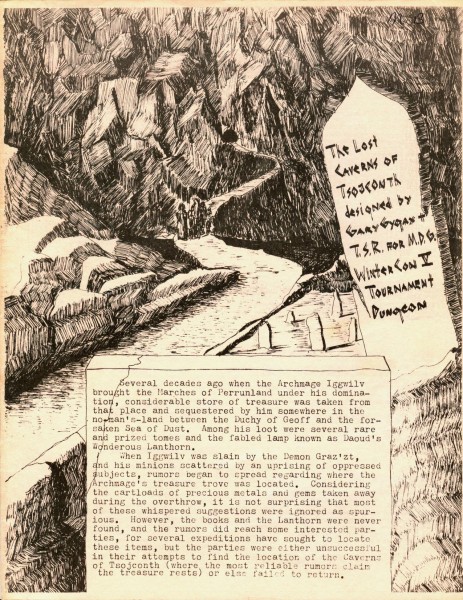 The Lost
Caverns of
Tsojconth
designed by
Gary Gygax +
T.S.R. for M.D.G.
WinterCon V
Tournament
Dungeon
Several decades ago when the Archmage Iggwilv
brought the Marches of Perrunland under his domina-
tion, considerable store of treasure was taken from
that place and sequestered by him somewhere in the
no-man's-land between the Duchy of Geoff and the for-
saken Sea of Dust. Among his loot were several rare
and prized tomes and the fabled lamp known as Daoud's
Wonderous Lanthorn.
When Iggwilv was slain by the Demon Graz'zt,
and his minions scattered by an uprising of oppressed
subjects, rumors began to spread regarding where the
Archmage's treasure trove was located. Considering
the cartloads of precious metals and gems taken away
during the overthrow, it is not surprising that most
of these whispered suggestions were ignored as spur-
ious. However, the books and the Lanthorn were never
found, and the rumors did reach some interested par-
ties, for several expeditions have sought to locate
these items, but the parties were either unsuccessful
in their attempts to find the location of the Caverns
of Tsojconth (where the most reliable rumors claim
the treasure rests) or else failed to return.